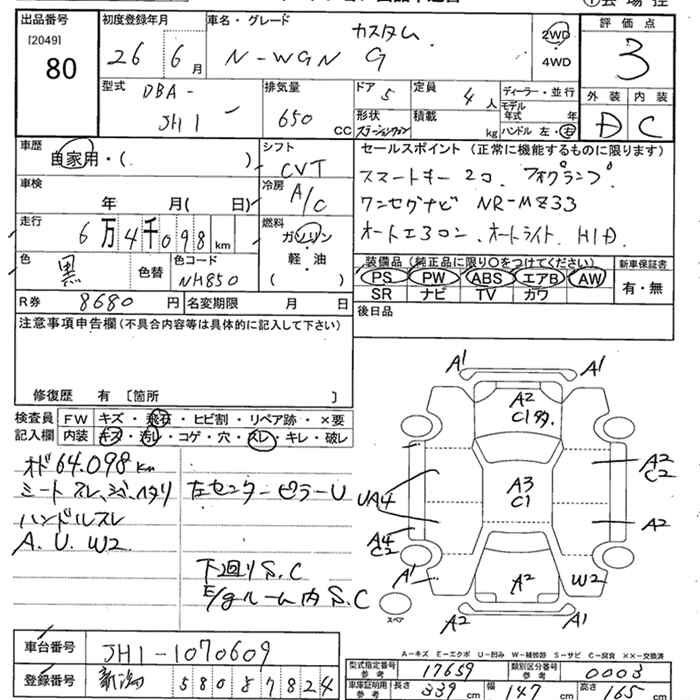 出品番号 初度登録年月 車名・グレード 評価点
[2049] 26年 6月 カスタム 2WD
80 N-WGN G ・ 4WD 3
型式 DBA- 排気量 ドア 5 定員 4人 ディーラー・並行 外装 内装
JH1 650 CC 形状 ステーションワゴン 積載 kg モデル年式 年 D C
ハンドル 左・右
車歴 自家用・( ) シフト CVT セールスポイント(正常に機能するものに限ります)
車検 年 月( 日) 冷房 A/C スマートキー2コ、フォグランプ
走行 6万4千098km 燃料 ガソリン ワンセグナビ NR-MZ33
色 黒 色替 色コード NH850 軽・油 オートエアコン、オートライト HID
( ) 装備品(純正品に限り○をつけてください) 新車保証書
R券 8680円 名変期限 月 日 PS PW ABS エアB AW 有・無
SR ナビ TV カワ
注意事項申告欄(不具合内容等は具体的に記入して下さい) 後日品
修復歴 有 [箇所 ]
検査員 FW キズ・飛石・ヒビ割・リペア跡・×要
記入欄 内装 キズ・汚レ・コゲ・穴・スレ・キレ・破レ
オド 64.098km
シート スレ、シミ、ヘタリ 左センターピラーU
ハンドルスレ
A.U.W2
下回りS.C
E/gルーム内S.C
A1 A1
A2
C1
A2
C2
UA4 A3
C1
A2
A4
C2
A1 A2 W2
スペア A2 A1
A-キズ E-エクボ U-凹み W-補修跡 S-サビ C-腐食 ××-交換済
車台番号 JH1-1070609 型式指定番号 参考 17659 類別区分番号 参考 0003
登録番号 新潟 580 ソ 7824 車庫証明用 参考 長さ 339cm 幅 147cm 高さ 165cm